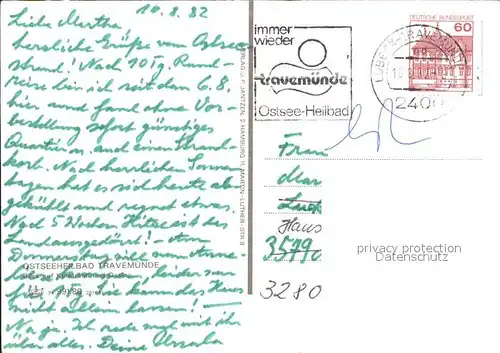 10.8.82
Liebe Martha,
herzliche Grüße vom Ostsee
strand! Nach 10 Tg. Rund-
reise bin ich seit dem 6.8.
hier und fand ohne Vor-
bestellung sofort günstiges
Quartier, auch einen Strand-
korb. Nach herrlichen Sonnen
tagen hat es sich heute ab-
gekühlt und regnet etwas.
Nach 5 Wochen Hitze ist das
Land ausgedörrt! - Am
Donnerstag will
leider
Sie kann das Haus
nicht allein lassen!
Na ja. Ich rede mal mit ihr
über alles. Deine Ursula
OSTSEEHEILBAD TRAVEMÜNDE
VERLAG S. P. JANTZEN, 2 HAMBURG 11, MARTIN-LUTHER-STR. 8
immer
wieder
travemünde
Ostsee-Heilbad
DEUTSCHE BUNDESPOST
60
LÜBECK-TRAVEMÜNDE
2400
Frau
Mar
Luck
Haus
3579
3280
privacy protection
Datenschutz